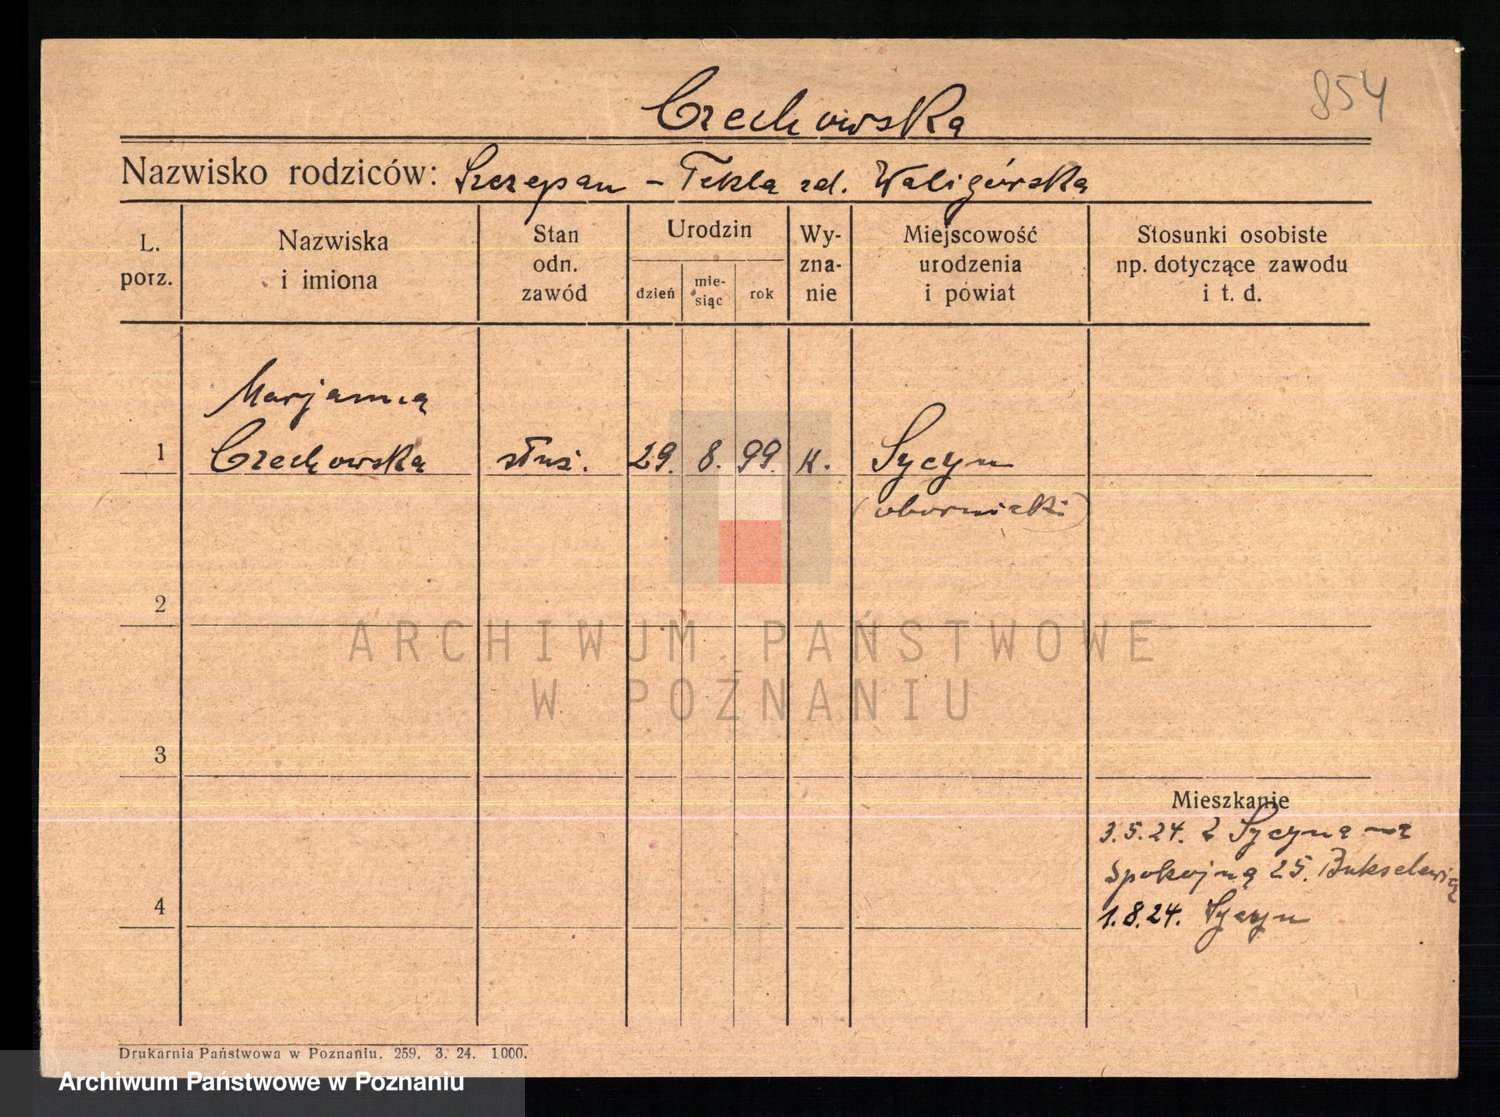 854
Czechowska
Nazwisko rodziców: Szczepan – Tekla zd. Waligórska
L. porz.
Nazwiska i imiona
Stan odn. zawód
Urodzin
dzień
mie-
siąc
rok
Wy-
zna-
nie
Miejscowość urodzenia i powiat
Stosunki osobiste
np. dotyczące zawodu
i t. d.
Marjanna
1 Czechowska służ. 29. 8. 99. k. Sycyn
(obornicki)
2
ARCHIWUM PAŃSTWOWE
W POZNANIU
3
Mieszkanie
3.5.24. z Sycyna na
Spokojną 25.
4
1.8.24. Sycyn
Drukarnia Państwowa w Poznaniu. 259. 3. 24. 1000.
Archiwum Państwowe w Poznaniu